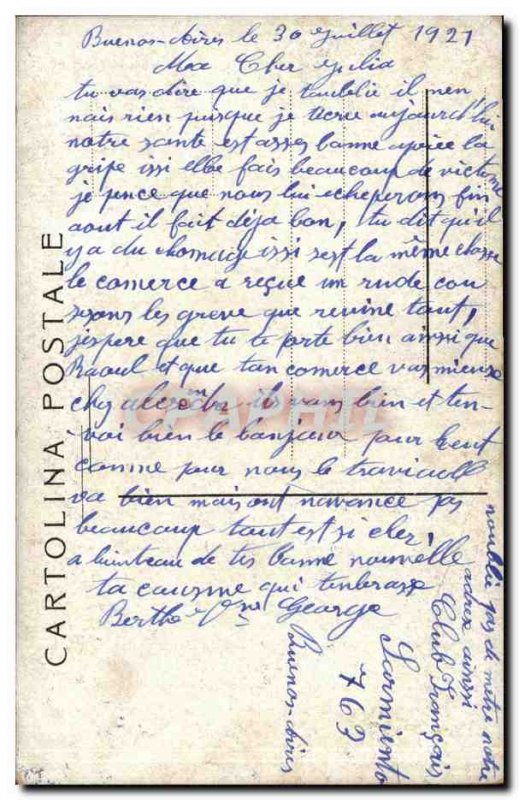 Buenos-Aires le 30 juillet 1921
Ma Cher Julia
tu vas dire que je t'aublie il nen
nais rien puisque je t'ecrie aujourd'hui
notre sante est asses banne aprèe la
gripe issi elbe fais beaucoup de victime
je pence que nous lui echeperons fin
aout il fait déja bon, tu dit qu'il
ya du chomage issi sest la même chose
le comerce a reçue un rude cou
les greve que reuine tout,
j'espere que tu te porte bien ainsi que
Raoul et que tan comerce vas mieux
chez ils vons bien et ten-
voi bien le banjour pour
comme pour nous le travaielle
va bien mais ont navance pas
beaucoup tout est si cher,
a binteau de tes banne nouvelle
ta causine qui tenbrasse
Berthe George
noublie pas de metre notre
adrèx ainssi
Club Français
Sarmiento
763
Buenos-Aires
CARTOLINA POSTALE
CPAPHIL